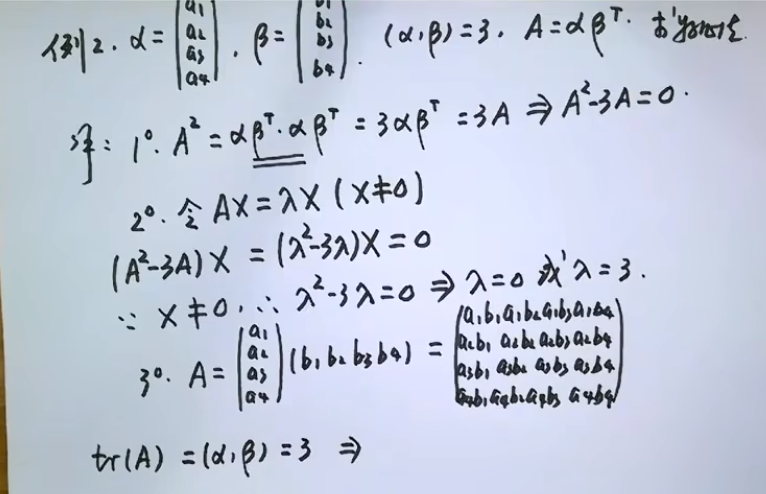 例2. α=(a1 a2 a3 a4), β=(b1 b2 b3 b4). (α,β)=3. A=αβ^T. 求
解: 1°. A²=αβ^T·αβ^T=3αβ^T=3A⇒A²-3A=0.
2°. 令 AX=λX (X≠0)
(A²-3A)X=(λ²-3λ)X=0
∵ X≠0, ∴ λ²-3λ=0⇒λ=0 或 λ=3.
3°. A=(a1 a2 a3 a4)(b1 b2 b3 b4)=(a1b1 a1b2 a1b3 a1b4
a2b1 a2b2 a2b3 a2b4
a3b1 a3b2 a3b3 a3b4
a4b1 a4b2 a4b3 a4b4)
tr(A)=(α,β)=3⇒